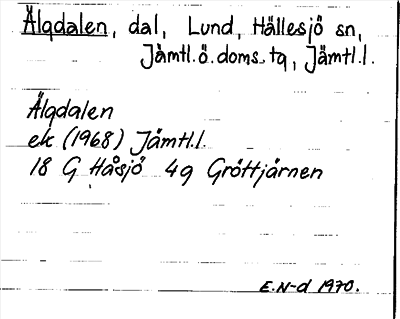 Älgdalen, dal, Lund, Hällesjö sn,
Jämtl.ö.doms.tg, Jämtl.l.
Älgdalen
ek (1968) Jämtl.l.
18 G Håsjö 4g Gröttjärnen
E.N-d 1970.